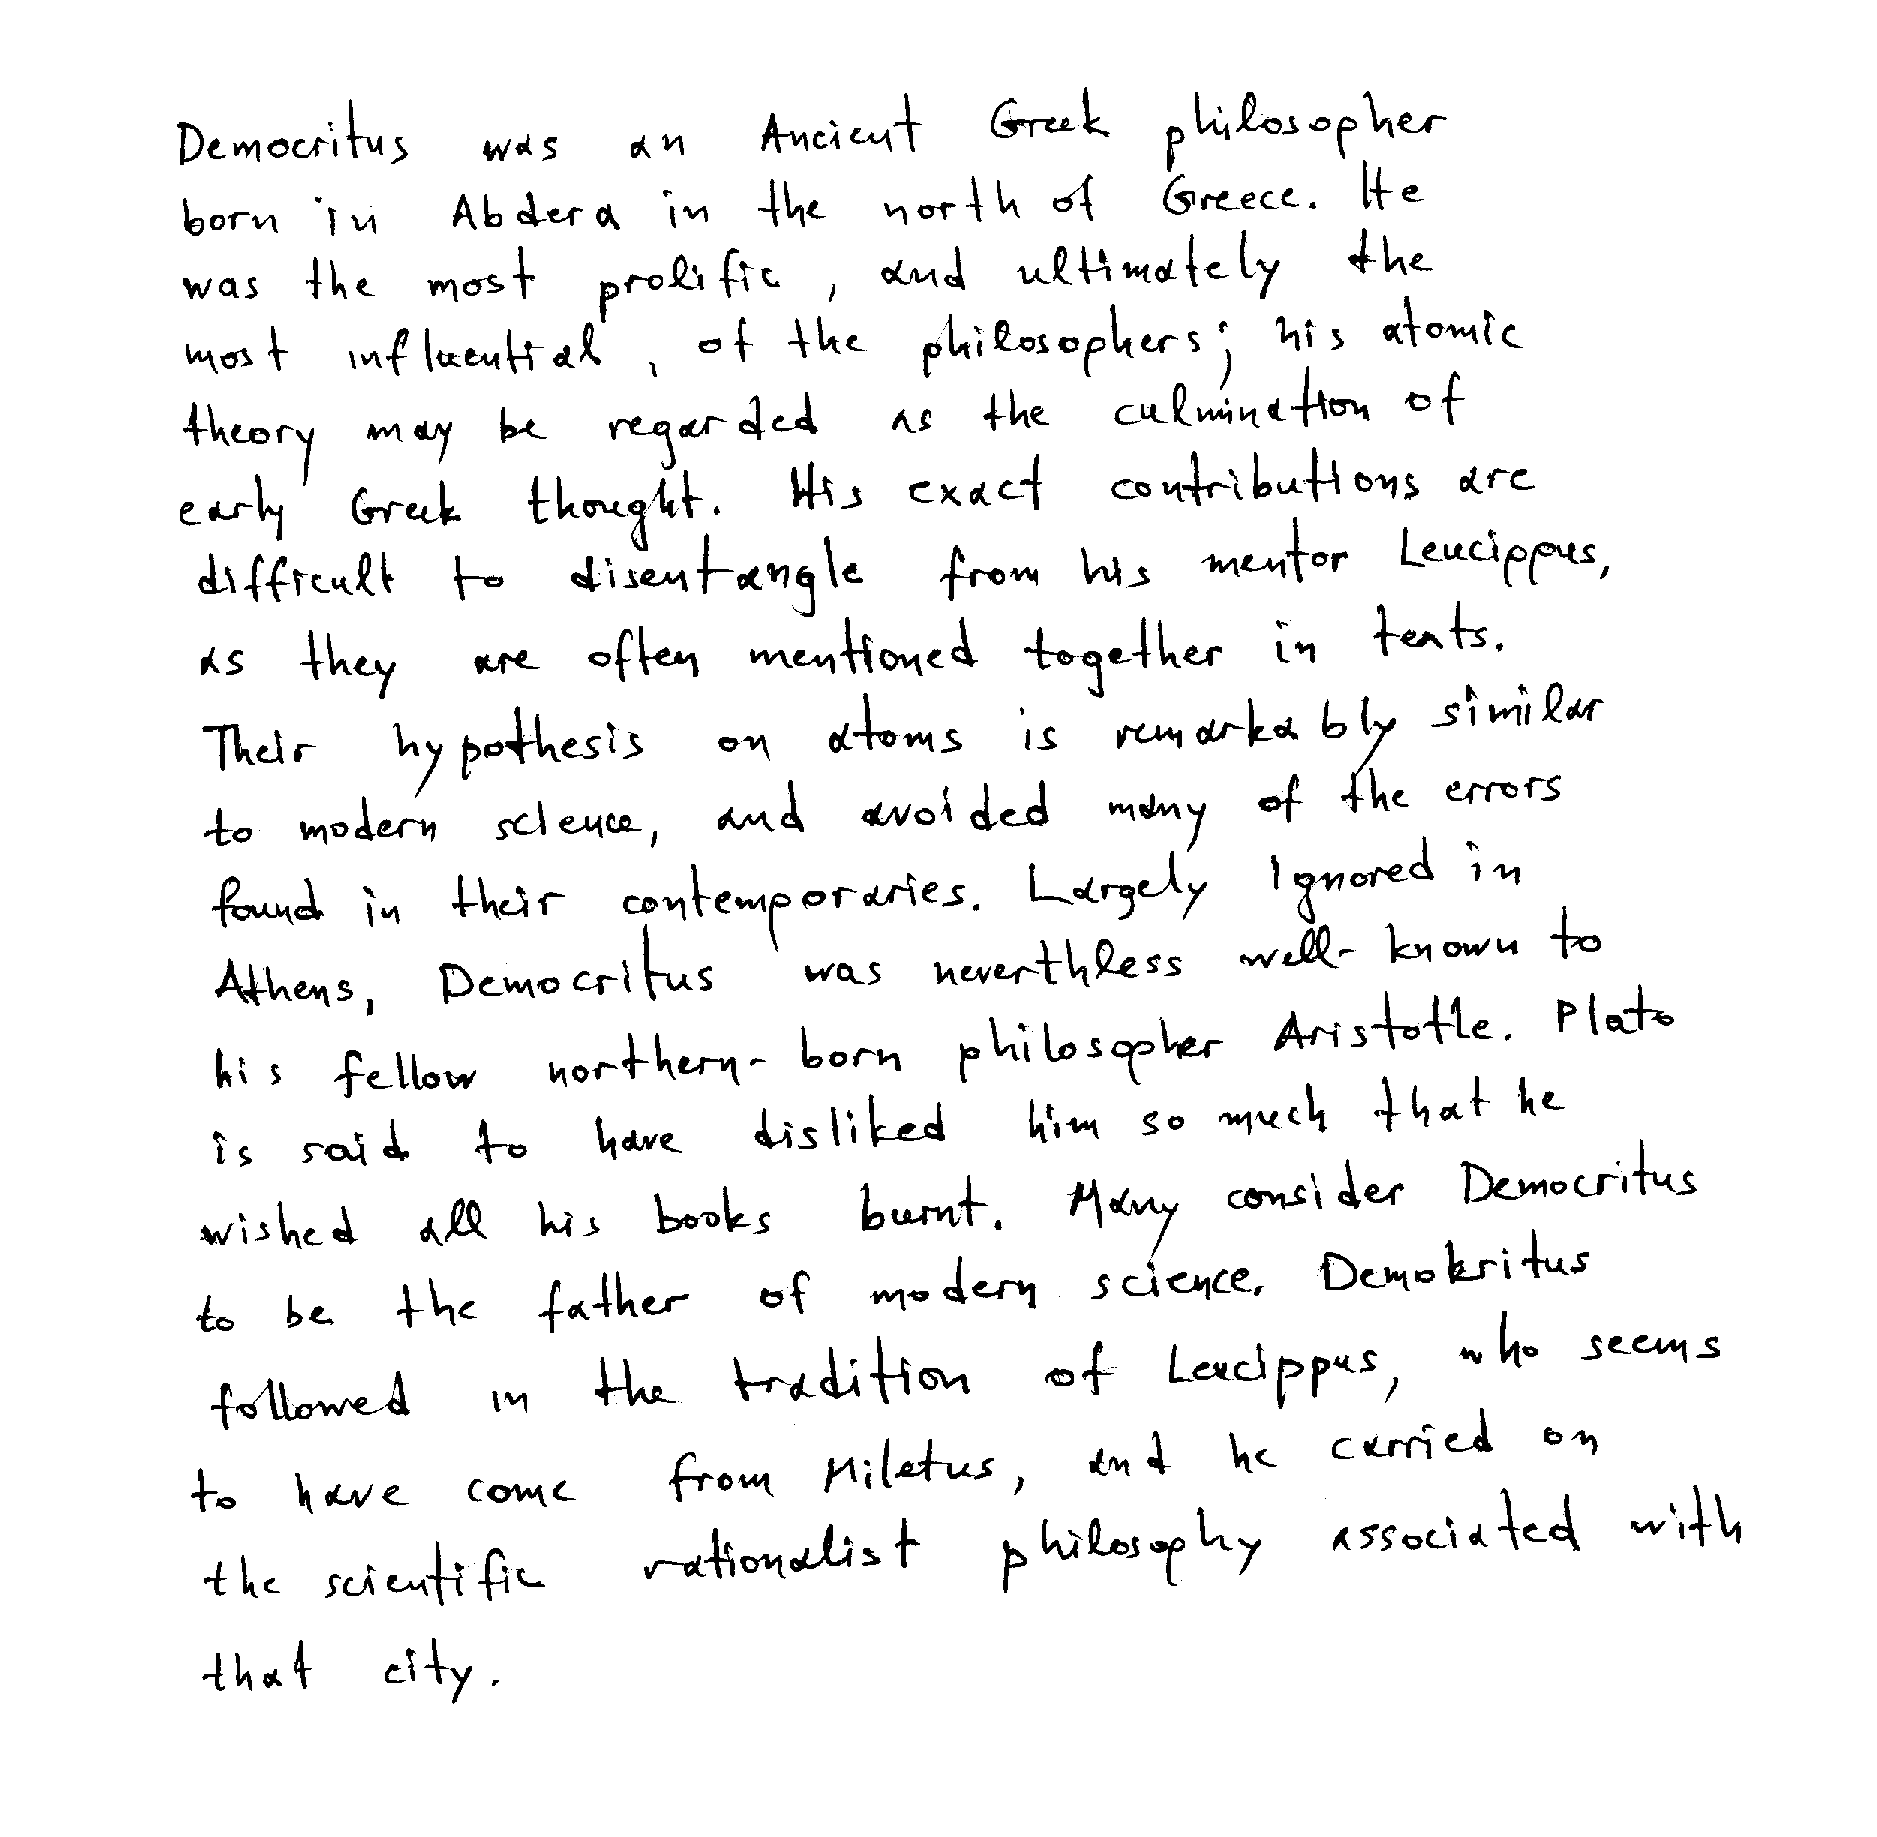 Democritus was an Ancient Greek philosopher
born in Abdera in the north of Greece. He
was the most prolific, and ultimately the
most influential, of the philosophers; his atomic
theory may be regarded as the culmination of
early Greek thought. His exact contributions are
difficult to disentangle from his mentor Leucippus,
as they are often mentioned together in texts.
Their hypothesis on atoms is remarkably similar
to modern science, and avoided many of the errors
found in their contemporaries. Largely Ignored in
Athens, Democritus was neverthless well-known to
his fellow northern-born philosopher Aristotle. Plato
is said to have disliked him so much that he
wished all his books burnt. Many consider Democritus
to be the father of modern science. Demokritus
followed in the tradition of Leucippus, who seems
to have come from Miletus, and he carried on
the scientific rationalist philosophy associated with
that city.